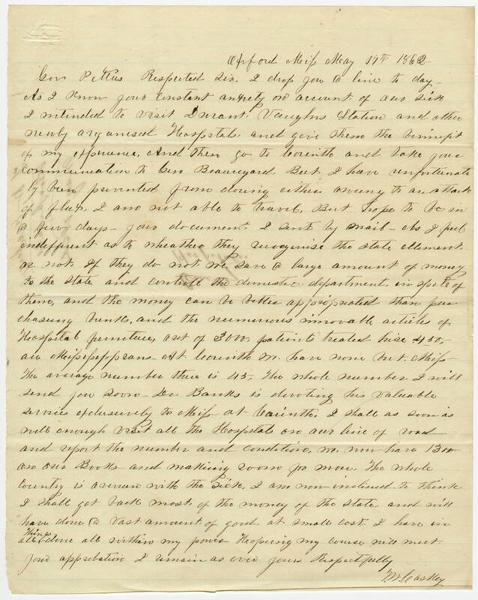 Oxford Miss May 19th 1862
Gov Pettus Respected Sir. I drop you a line to day
As I know your constant anxiety on account of our Sick
I intended to visit Durant Vaughns Station and other
newly organised Hospitals and give them the bennifit
of my experience. And then go to Corinth and take your
communication to Gen Beauregard But I have unfortunate
ly been prevented from doing either owing to an attack
of flux, I am not able to travel, But hope to be in
a few days - your document I sent by mail - As I feel
indifferent as to wheather they recognise the State ellement
or not. If they do not we save a large amount of money
to the State and controll the domestic department in spite of
them, and the money can be better appropriated than pur
chasing bunks, and the numerous inovable articles of
Hospital furniture, out of 3000 patients treated here 450
are Mississippians. At Corinth we have none but Miss
The average number there is 45. The whole number I will
send you soon. Dr Banks is devoting his valuable
services exclusively to Miss at Corinth. I shall as soon as
well enough visit all the Hospitals on our line of road
and report the number and condition, we now have
on our Books and making room for more. The whole
country is overrun with the Sick. I am now inclined to think
I shall get back most of the money of the State and will
have done a vast amount of good at small cost. I have in
all things done all within my power Hopeing my course will meet
your approbation I remain as ever yours Respectfully